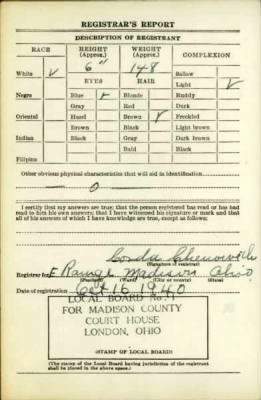 REGISTRAR'S REPORT
DESCRIPTION OF REGISTRANT
RACE HEIGHT (Approx.) WEIGHT (Approx.) COMPLEXION
6 148
White ✓ Sallow
EYES HAIR Light ✓
Negro Blue ✓ Blonde Ruddy
Gray Red Dark
Oriental Hazel Brown ✓ Freckled
Brown Black Light brown
Indian Black Gray Dark brown
Bald Black
Filipino
Other obvious physical characteristics that will aid in identification
— O —
I certify that my answers are true; that the person registered has read or has had
read to him his own answers; that I have witnessed his signature or mark and that
all of his answers of which I have knowledge are true, except as follows:
Chenoweth
(Signature of registrar)
Registrar for E Range Madison Ohio
(Precinct) (Ward) (City or county) (State)
Date of registration Oct 16 1940
LOCAL BOARD No. 1
FOR MADISON COUNTY
COURT HOUSE
LONDON, OHIO
(STAMP OF LOCAL BOARD)
(The stamp of the Local Board having jurisdiction of the registrant
shall be placed in the above space.)